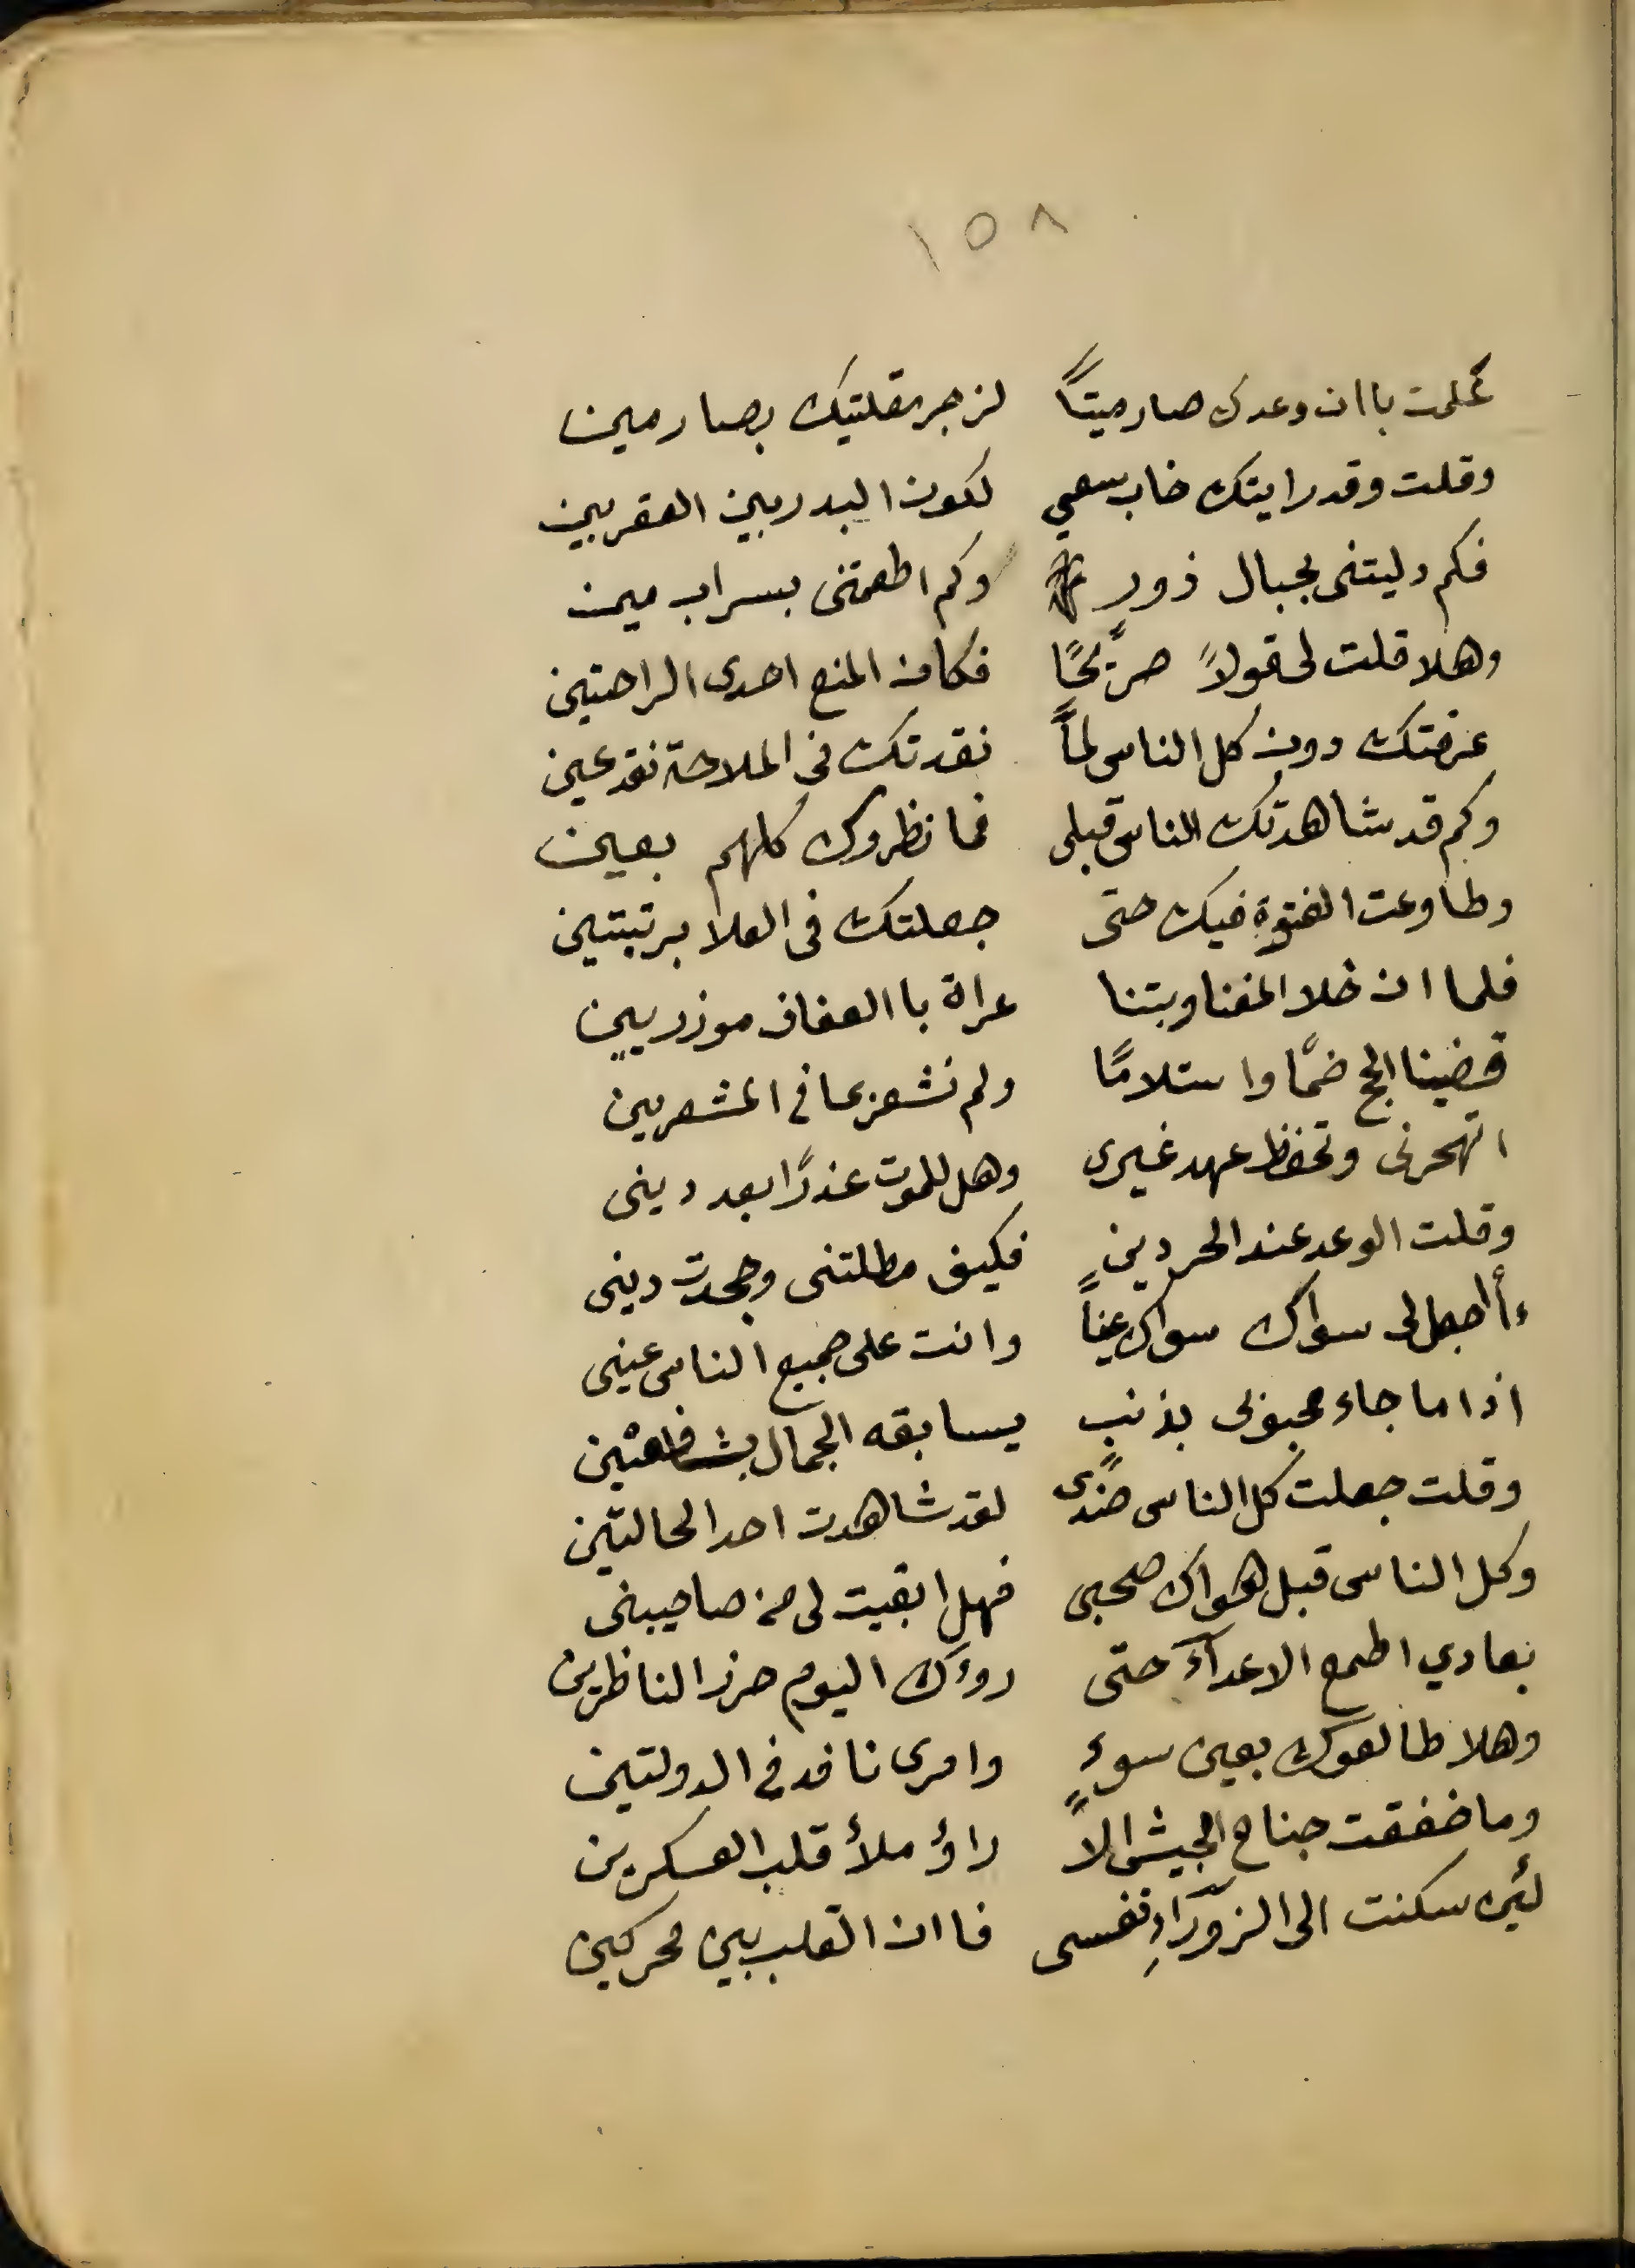 ١٥٨
علمت باان وعدك صار ميتًا لزجر مقلتيك بصارمين
وقلت وقد رايتك خاب سعي لكون البدر بين العقربين
فكم دليتنى بجبال زور وكم اطعمتنى بسراب مين
وهلا قلت لى قولاً صريحًا فكان المنع احدى الراحتين
عرفتك دون كل الناس لمّاً نقدتك فى الملاحة نقد عين
وكم قد شاهدتك الناس قبلى فما نظروك كلهم بعين
وطاوعت الفتوة فيك حتى جعلتك فى العلا برتبتين
فلما ان خلا المغنا وبتنا عراة باالعفاف موزريين
قضينا الحج ضمًا واستلامًا ولم نشعر بما فى المشعرين
اتهجرنى وتحفظ عهد غيرى وهل للموت عذرًا بعد دينى
وقلت الوعد عند الحر دينٍ فكيف مطلتنى وجحدت دينى
ءأاجعل لى سواك سواك عيناً وانت على جميع الناس عينى
اذا ما جاء محبوبى بذنبٍ يسابقه الجمال بشافعين
وقلت جعلت كل الناس ضدًى لقد شاهدت احد الحالتين
وكل الناس قبل هواك صحبى فهل ابقيت لى من صاحبينى
بعادي اطمع الاعدآءَ حتى روءك اليوم حزر الناظرين
وهلا طالعوك بعين سوءٍ وامرى نافد فى الدولتين
وما خفقت جناح الجيش الاً راؤ ملأ قلب العسكرين
لئن سكنت الى الزورآءِ نفسى فاان القلب بين محركين